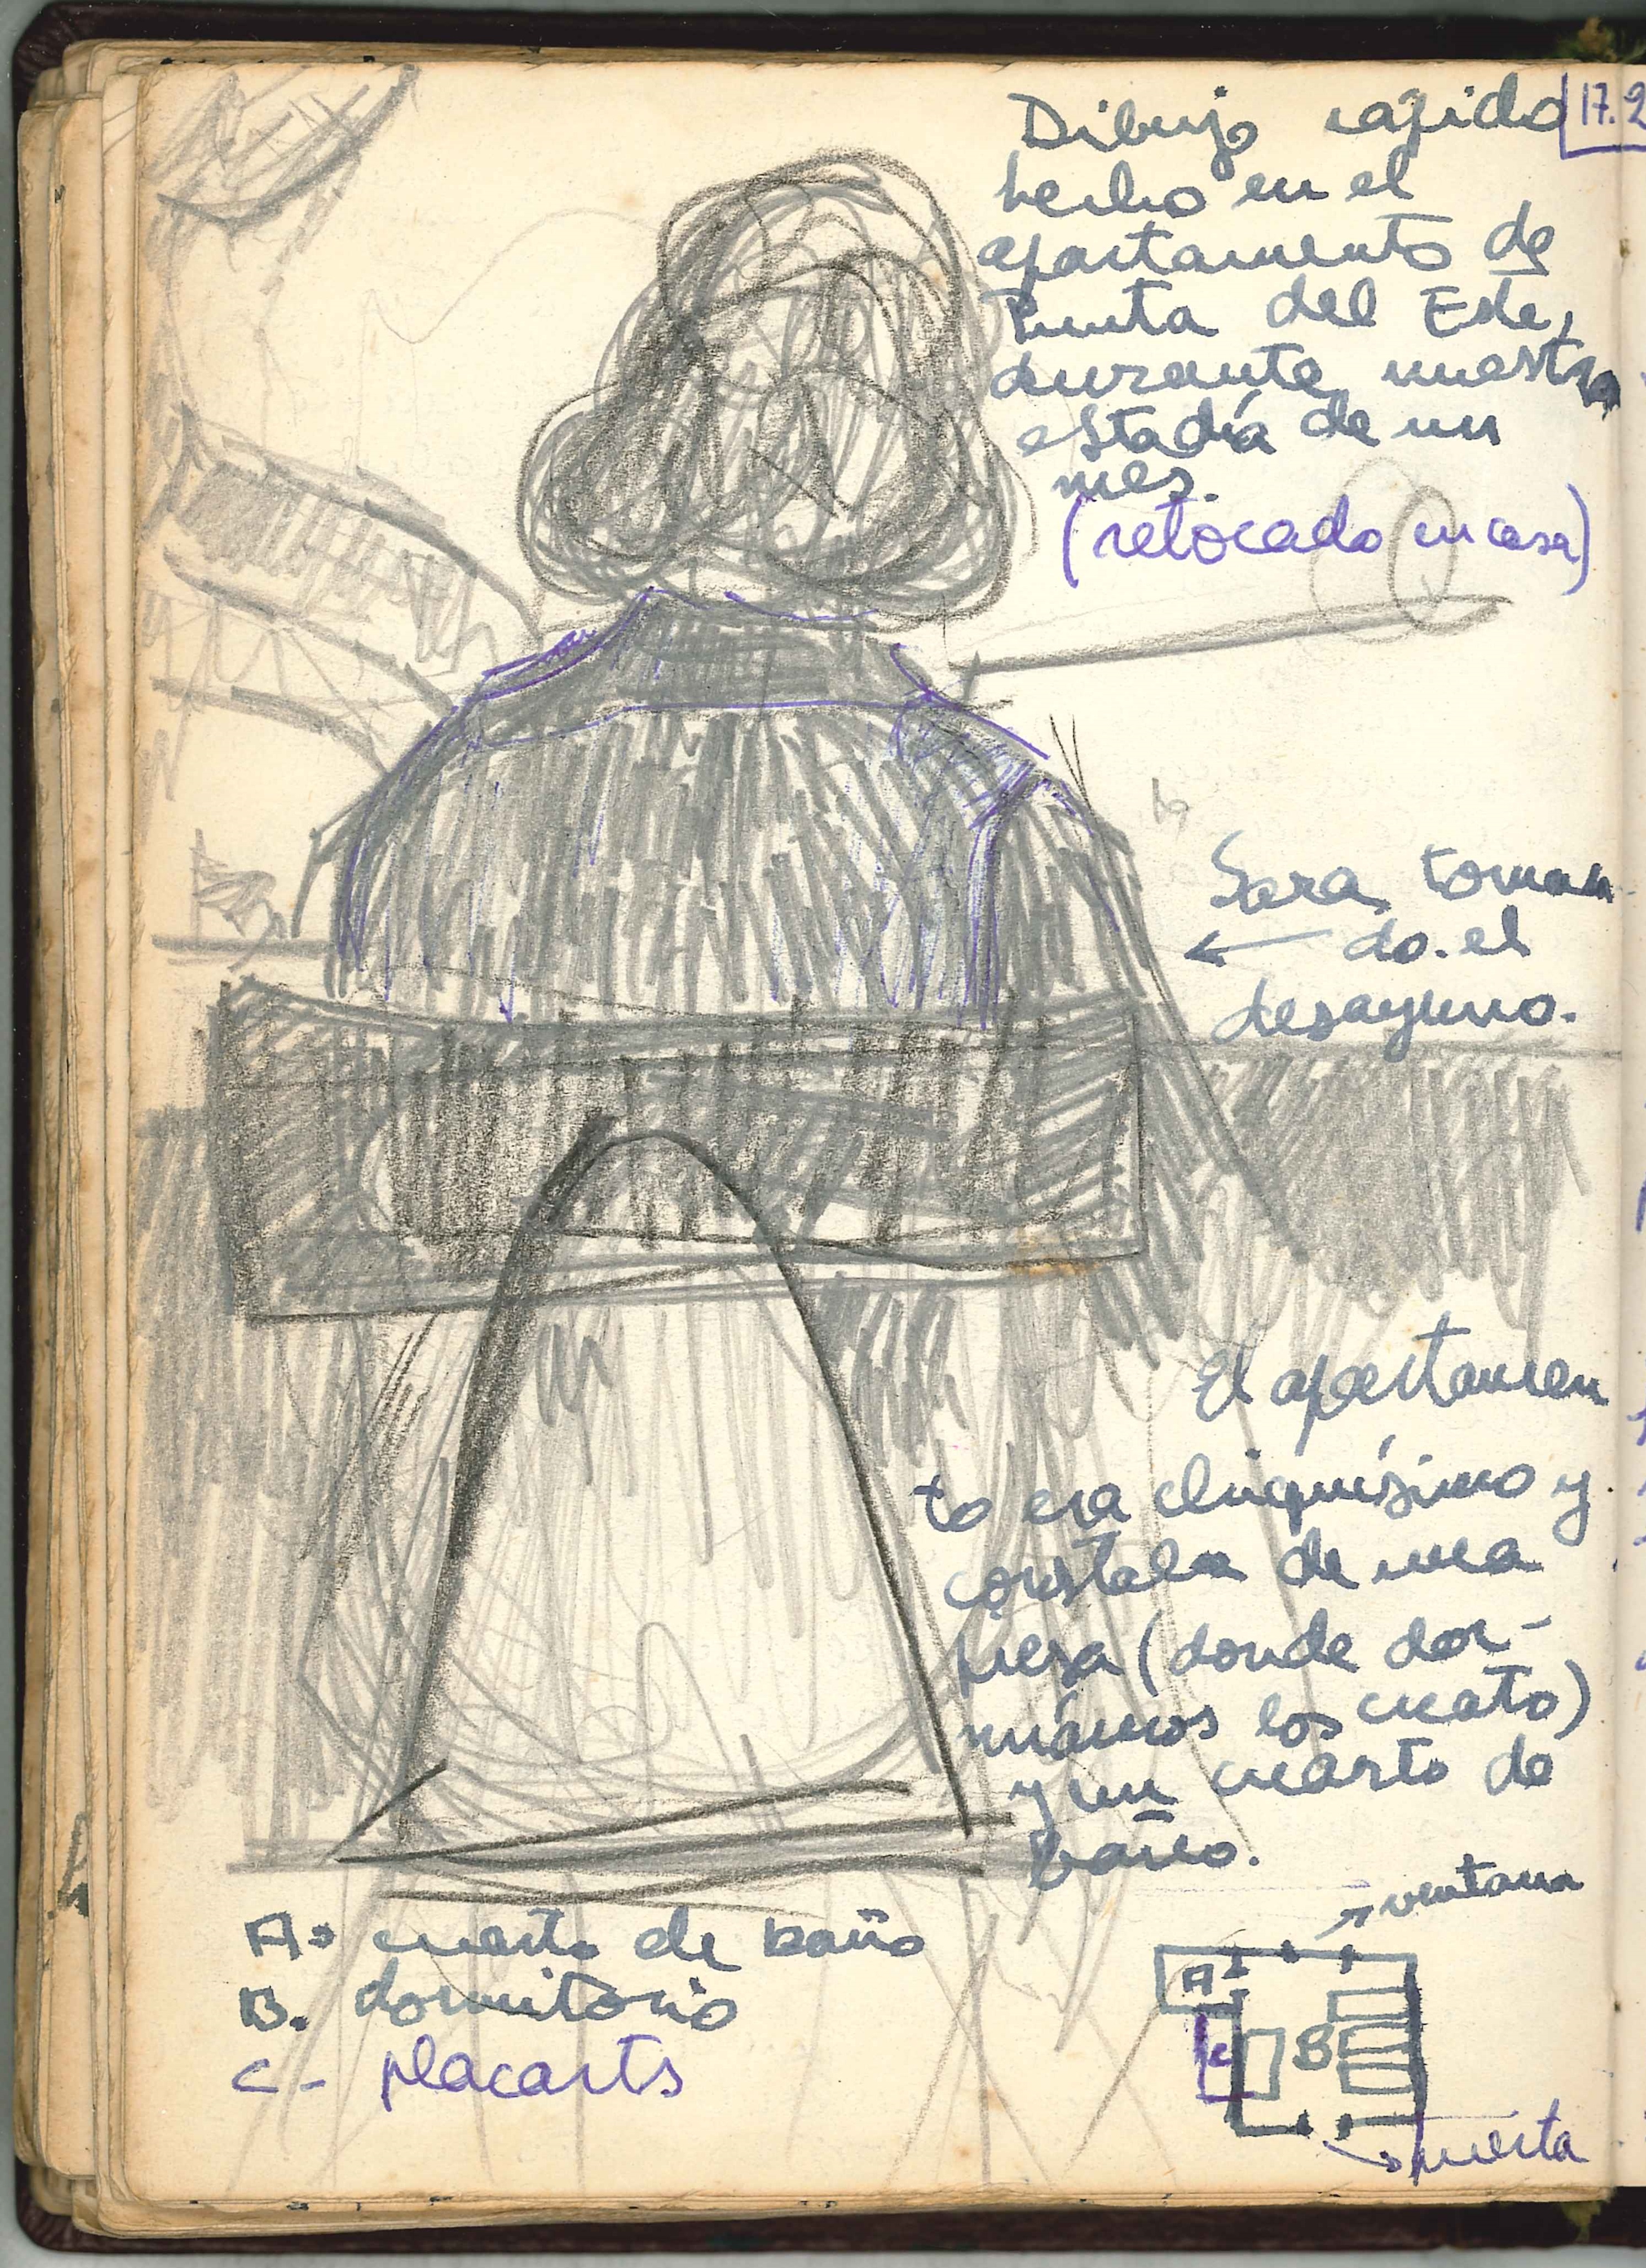 Dibujo rápido
17.2
hecho en el
apartamento de
Punta del Este,
durante nuestra
estadía de un
mes.
(retocado en casa)
Sara toman
do el
desayuno.
El apartamen
to era chiquísimo y
constaba de una
pieza (donde dor-
míamos los cuato)
y un cuarto de
baño.
ventana
A= cuarto de baño
B. dormitorio
C- placarts
A
B
c
puerta